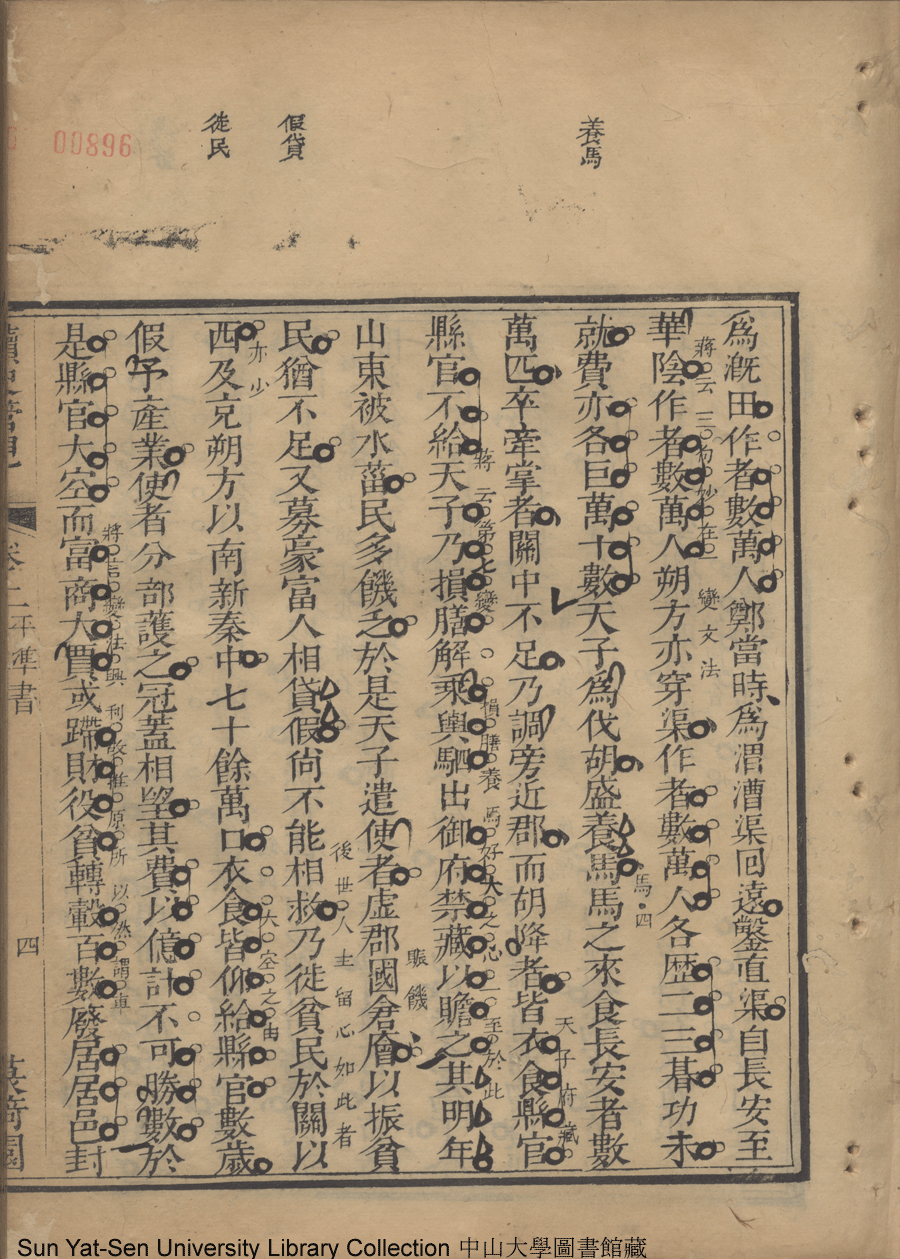 養馬
假貸
徙民
00896
爲漑田作者數萬人鄭當時爲渭漕渠回遠鑿直渠自長安至
華陰作者數萬人朔方亦穿渠作者數萬人各歷二三朞功未
蔣云三句妙在一變文法
就費亦各巨萬十數天子爲伐胡盛養馬馬之來食長安者數
馬四
萬匹卒牽掌者關中不足乃調旁近郡而胡降者皆衣食縣官
天子府藏
縣官不給天子乃損膳解乘輿駟出御府禁藏以贍之其明年
蔣云第七變損膳養馬好大之心一至於此
山東被水菑民多饑乏於是天子遣使者虛郡國倉廥以振貧
賑饑
民猶不足又募豪富人相貸假尙不能相救乃徙貧民於關以
後世人主留心如此者
亦少
西及充朔方以南新秦中七十餘萬口衣食皆仰給縣官數歲
大空之由
假予產業使者分部護之冠蓋相望其費以億計不可勝數於
是縣官大空而富商大賈或蹛財役貧轉轂百數廢居居邑封
將言變法興利故推原所以然謂
卷二平準書
四
Sun Yat-Sen University Library Collection 中山大學圖書館藏